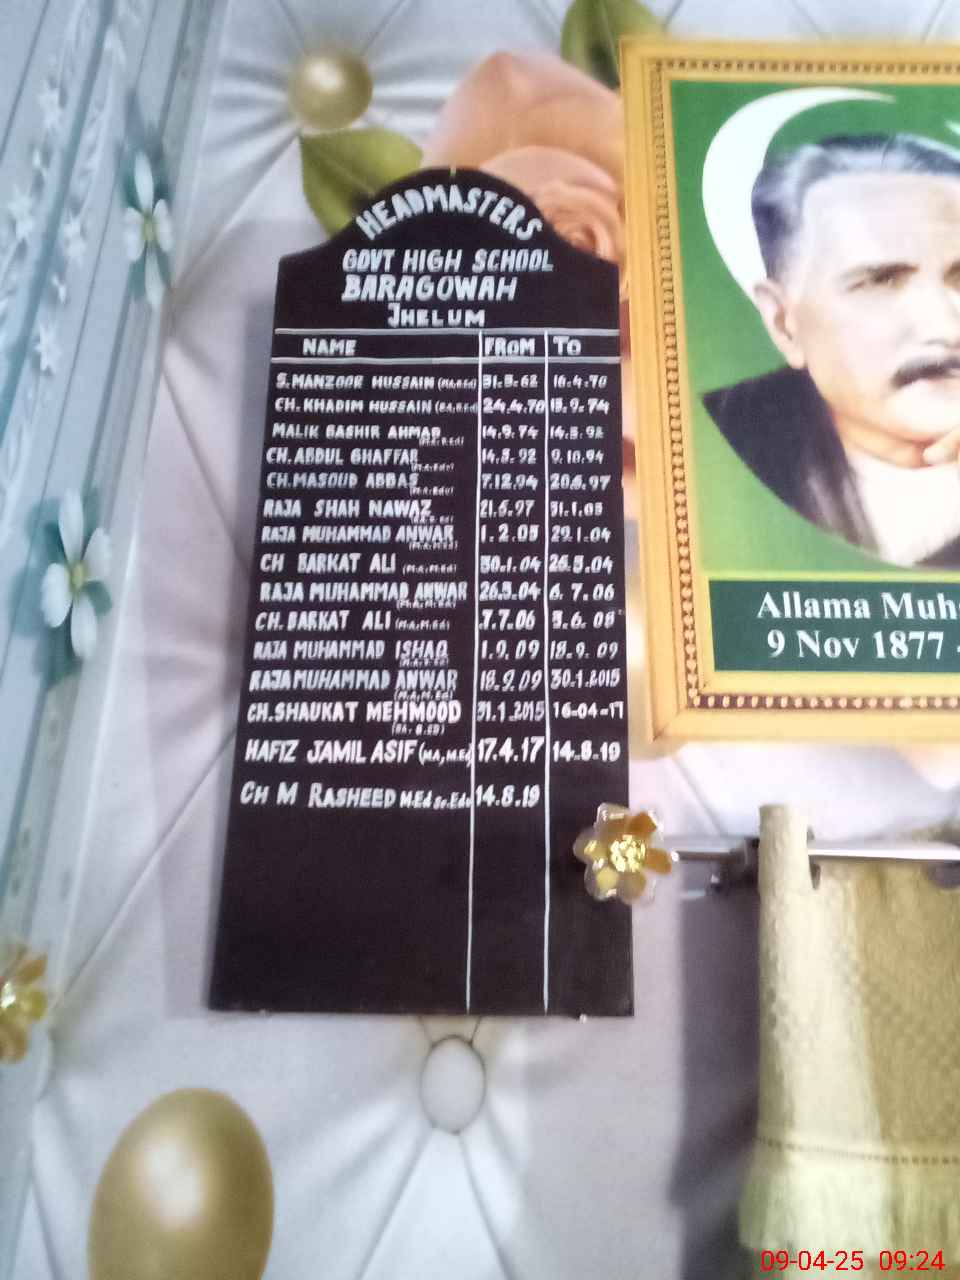 HEADMASTERS
GOVT HIGH SCHOOL
BARAGOWAH
JHELUM
NAME FROM TO
S. MANZOOR HUSSAIN (MA, B.Ed) 31.5.62 16.4.70
CH. KHADIM HUSSAIN (BA, B.Ed) 24.4.70 13.9.74
MALIK BASHIR AHMAD 14.9.74 14.5.92
CH. ABDUL GHAFFAR 14.5.92 9.10.94
CH. MASOUD ABBAS 7.12.94 20.6.97
RAJA SHAH NAWAZ 21.6.97 31.1.03
RAJA MUHAMMAD ANWAR 1.2.03 29.1.04
(M.A, M.Ed)
CH BARKAT ALI (M.A, M.Ed) 30.1.04 26.5.04
RAJA MUHAMMAD ANWAR 26.5.04 6.7.06
(M.A, M.Ed)
CH. BARKAT ALI (M.A, M.Ed) 7.7.06 3.6.08
RAJA MUHAMMAD ISHAQ 1.9.09 18.9.09
RAJA MUHAMMAD ANWAR 18.9.09 30.1.2015
(M.A, M.Ed)
CH. SHAUKAT MEHMOOD 31.1.2015 16-04-17
(BA, B.ED)
HAFIZ JAMIL ASIF (MA, M.Ed) 17.4.17 14.8.19
CH M RASHEED M.Ed Sc.Edu 14.8.19
Allama Muh
9 Nov 1877 -
09-04-25 09:24